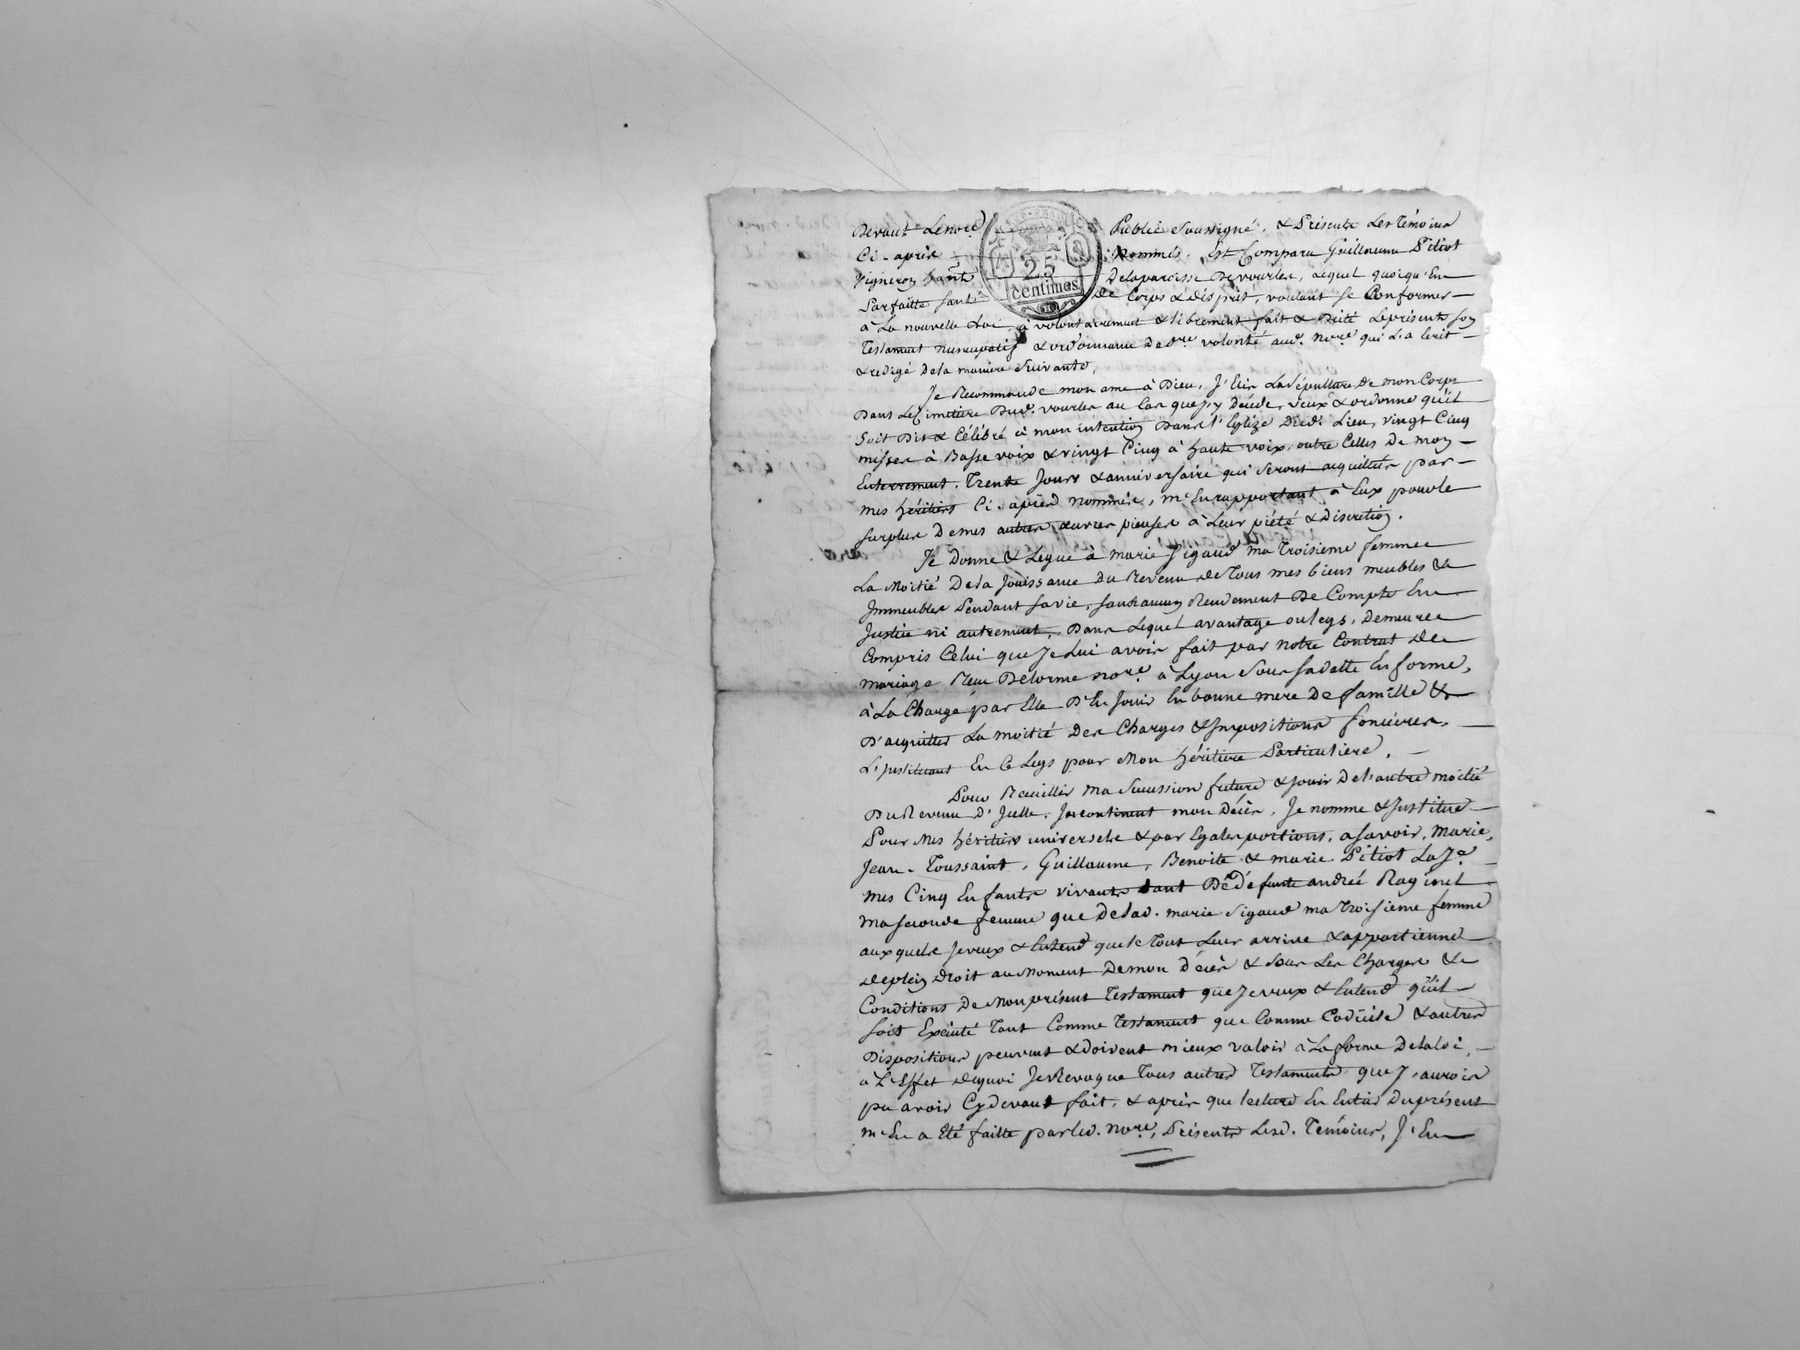 Devant Le no.re Public Soussigné, & Présents Les Témoins
Ci-après Nommés, Est Comparu Guillaume Pitiot
Vigneron hant De la paroisse De vourles, Lequel quoiqu'En
Parfaitte santé De Corps & d'ésprit, voulant se Conformer
à La nouvelle Loi, à volontairement & librement fait & Dicté Le présent son
Testament nuncupatif & ordonnance De d.re volonté aud. no.re qui L'a Ecrit
& redigé De la manière Suivante,
Je Recommande mon ame à Dieu, J'Elis La sépulture De mon Corps
Dans Le Cimetiere Dud. vourles au Cas que J'y Décède, veux & ordonne qu'il
Soit Dit & Célébré à mon intention Dans l'Eglize Dud. Lieu, vingt Cinq
messes à Basse voix & vingt Cinq à haute voix, outre Celles De mon
Enterrement, Trente Jours & anniversaire qui Seront acquittés par
mes héritiers Ci-après nommés, m'En rapportant à Eux pour le
surplus De mes autres œuvres pieuses à Leur piété & discretion.
Je Donne & Legue à marie Sigaud ma Troisieme femme
La Moitié De la Jouissance du Revenu de Tous mes biens meubles &
Immeubles Pendant sa vie, sans aucun Rendement De Compte En
Justice ni autrement, Dans Lequel avantage ou legs, Demeure
Compris Celui que Je Lui avois fait par notre Contrat De
mariage Reçu Delorme no.re à Lyon Sous sa datte En forme,
à La Charge par Elle D'En Jouir En bonne mere De famille &
D'acquitter La moitié Des Charges & Impositions foncières,
L'Instituant En Ce Legs pour Mon héritiere Particuliere.
Pour Recuillir Ma Succession future & Jouir De l'autre moitié
Du Revenu D'Icelle, Incontinent mon Décès, Je nomme & Institue
Pour Mes héritiers universels & par Egales portions, a savoir, Marie,
Jean-Toussaint, Guillaume, Benoite & marie Pitiot La J.e
mes Cinq Enfants vivants tant De Défunte andrée Raginel
Ma seconde femme que De lad. marie Sigaud ma Troisieme femme
aux quels Je veux & Entend que le Tout Leur arrive & appartienne
de plein Droit au Moment De mon Décès & Sous Les Charges &
Conditions De Mon présent Testament que Je veux & Entend qu'il
soit Exécuté Tant Comme Testament que Comme Codicile & autres
Dispositions peuvent & doivent mieux valoir à La forme De la loi,
à L'Effet de quoi Je Revoque Tous autres Testaments que J'aurois
pu avoir Cy devant fait, & après que lecture En Entier Du présent
m'En a Eté faitte par led. no.re, Présents Lesd. Témoins, J'En
25
centimes